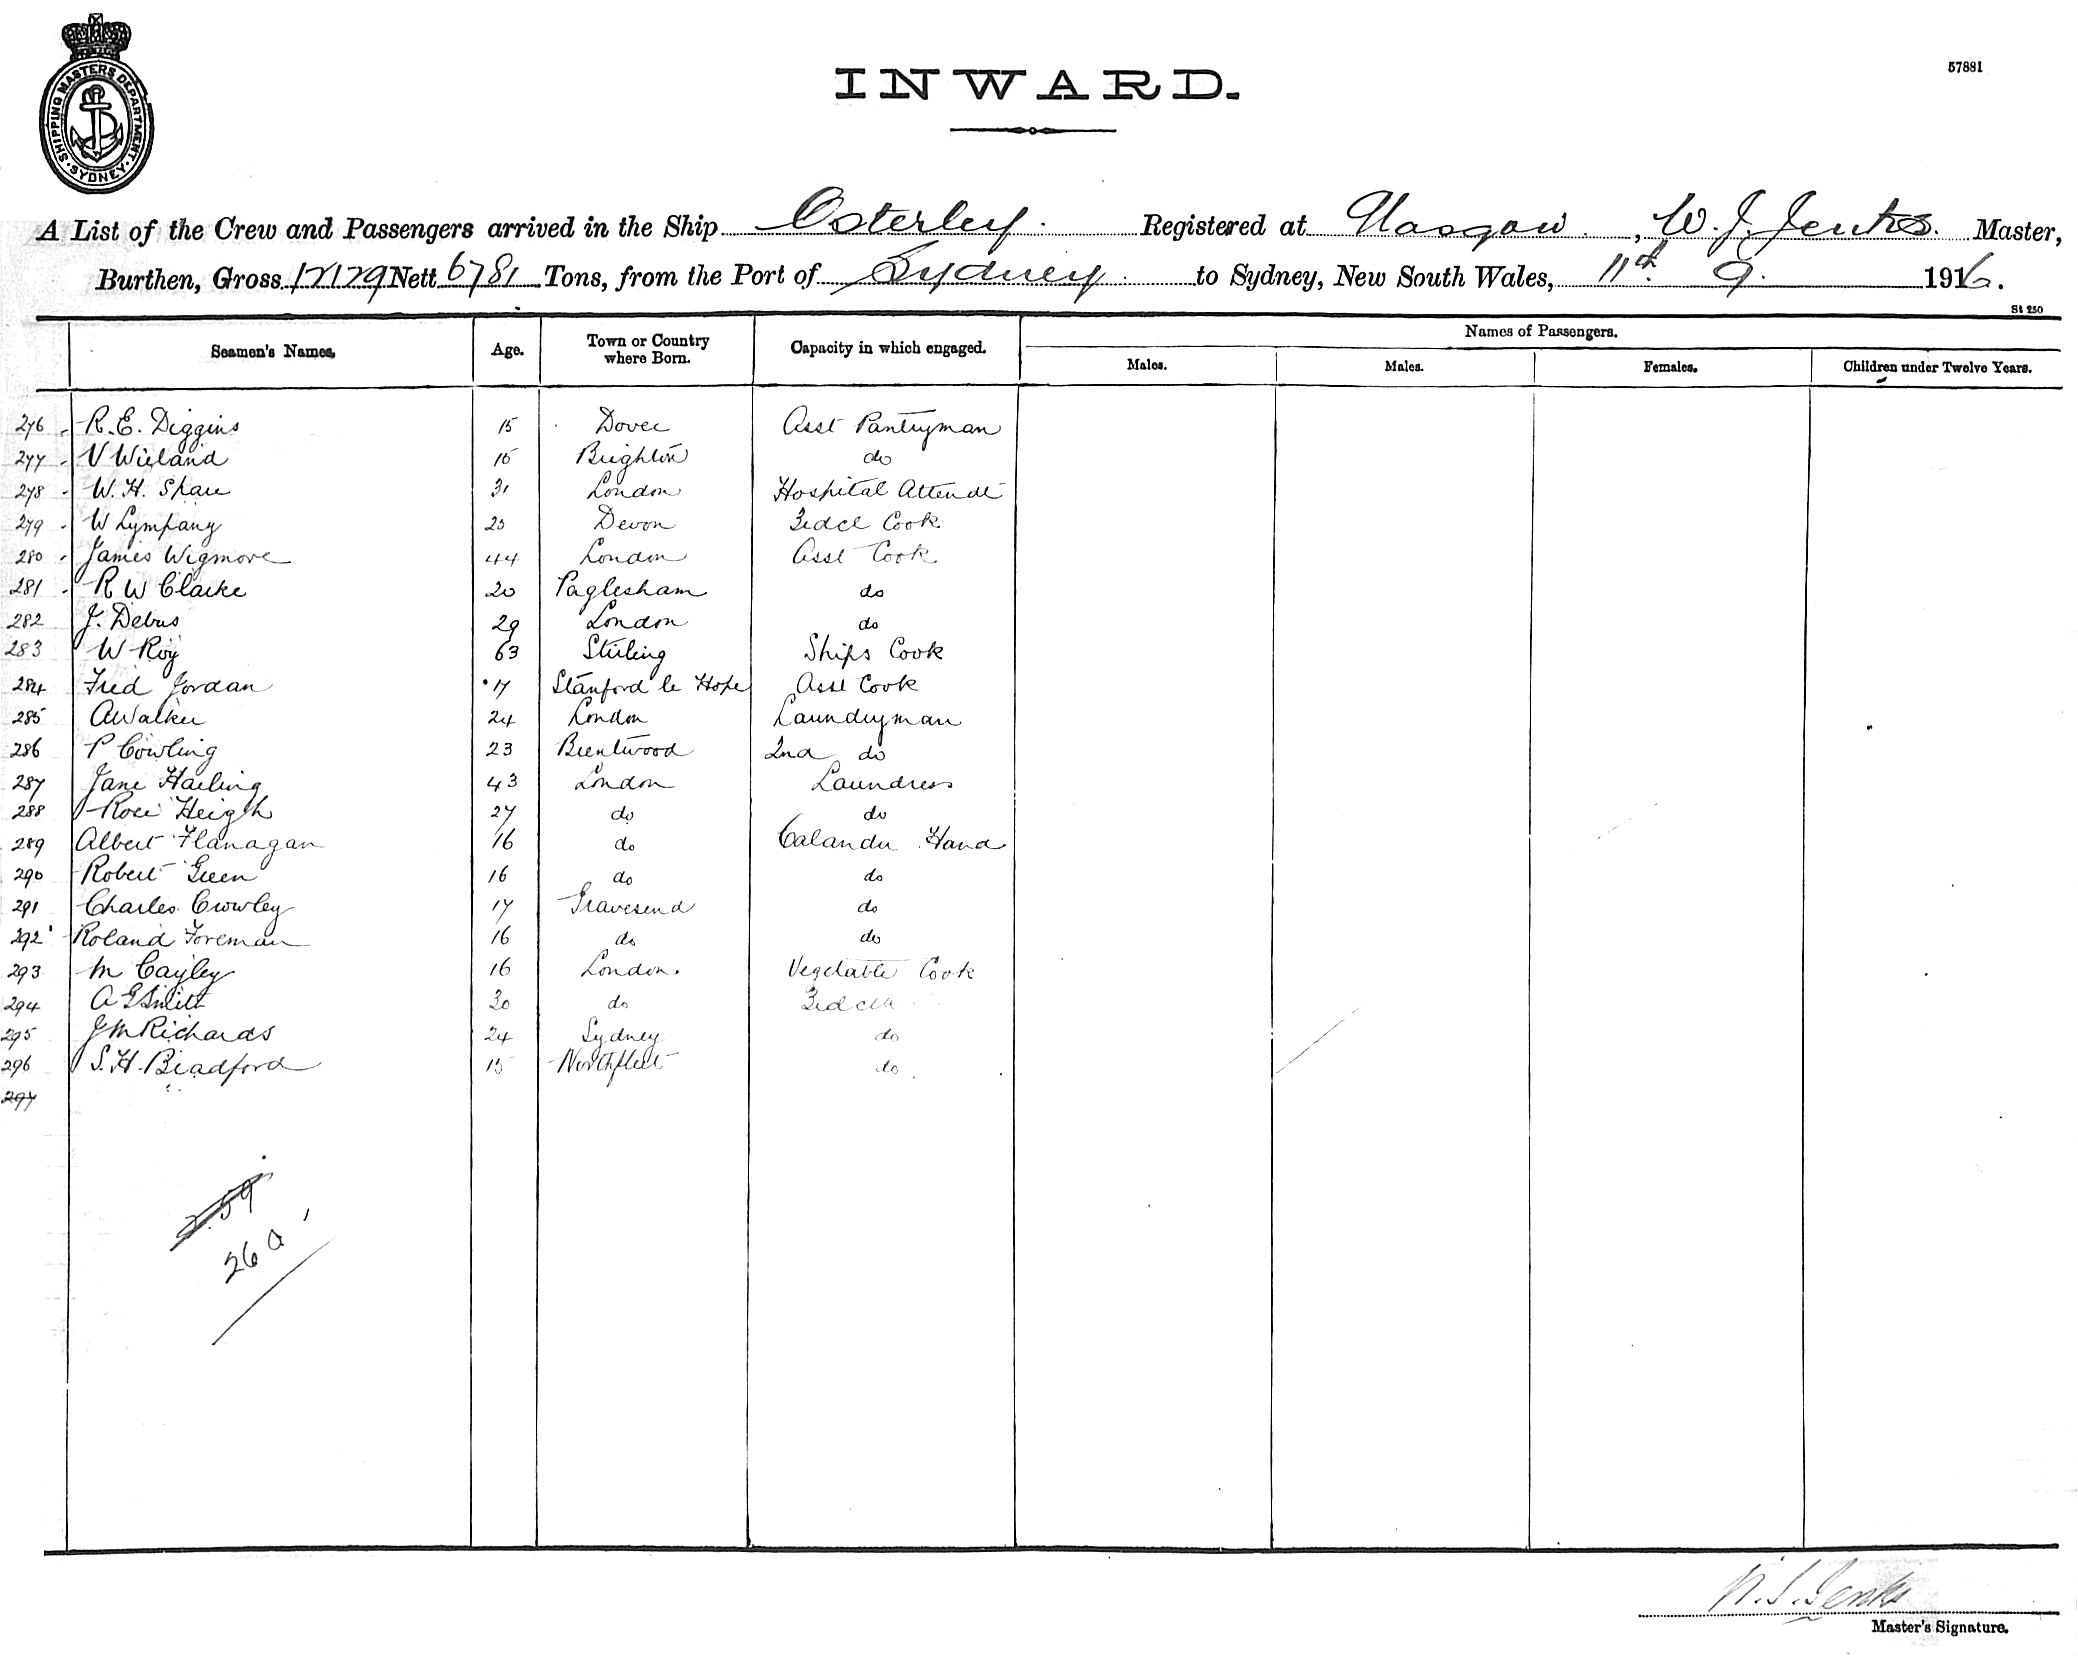 SHIPPING MASTERS DEPARTMENT. SYDNEY
INWARD.
57881
A List of the Crew and Passengers arrived in the Ship Osterley. Registered at Glasgow, W. J. Jenks. Master,
Burthen, Gross 12129 Nett 6781 Tons, from the Port of Sydney to Sydney, New South Wales, 11th 9. 1916.
St 250
Seamen's Names. Age. Town or Country where Born. Capacity in which engaged. Names of Passengers.
Males. Males. Females. Children under Twelve Years.
276 R. E. Diggins 15 Dover Asst Pantryman
277 V Wieland 15 Brighton do
278 W. H. Share 31 London Hospital Attendt
279 W Lympany 25 Devon 3rd Cl Cook
280 James Wigmore 44 London Asst Cook
281 R W Clarke 20 Paglesham do
282 J. Debus 29 London do
283 W Roy 63 Stirling Ships Cook
284 Fred Jordan 17 Stanford le Hope Asst Cook
285 A Walker 24 London Laundryman
286 P Cowling 23 Brentwood 2nd do
287 Jane Harling 43 London Laundress
288 Rose Heigh 27 do do
289 Albert Flanagan 16 do Calander Hand
290 Robert Green 16 do do
291 Charles Crowley 17 Gravesend do
292 Roland Foreman 16 do do
293 M Cayley 16 London. Vegetable Cook
294 A E Smith 30 do 3rd cl
295 J M Richards 24 Sydney do
296 S. H. Bradford 15 Northfleet do
297
259
260
W. J. Jenks
Master's Signature.